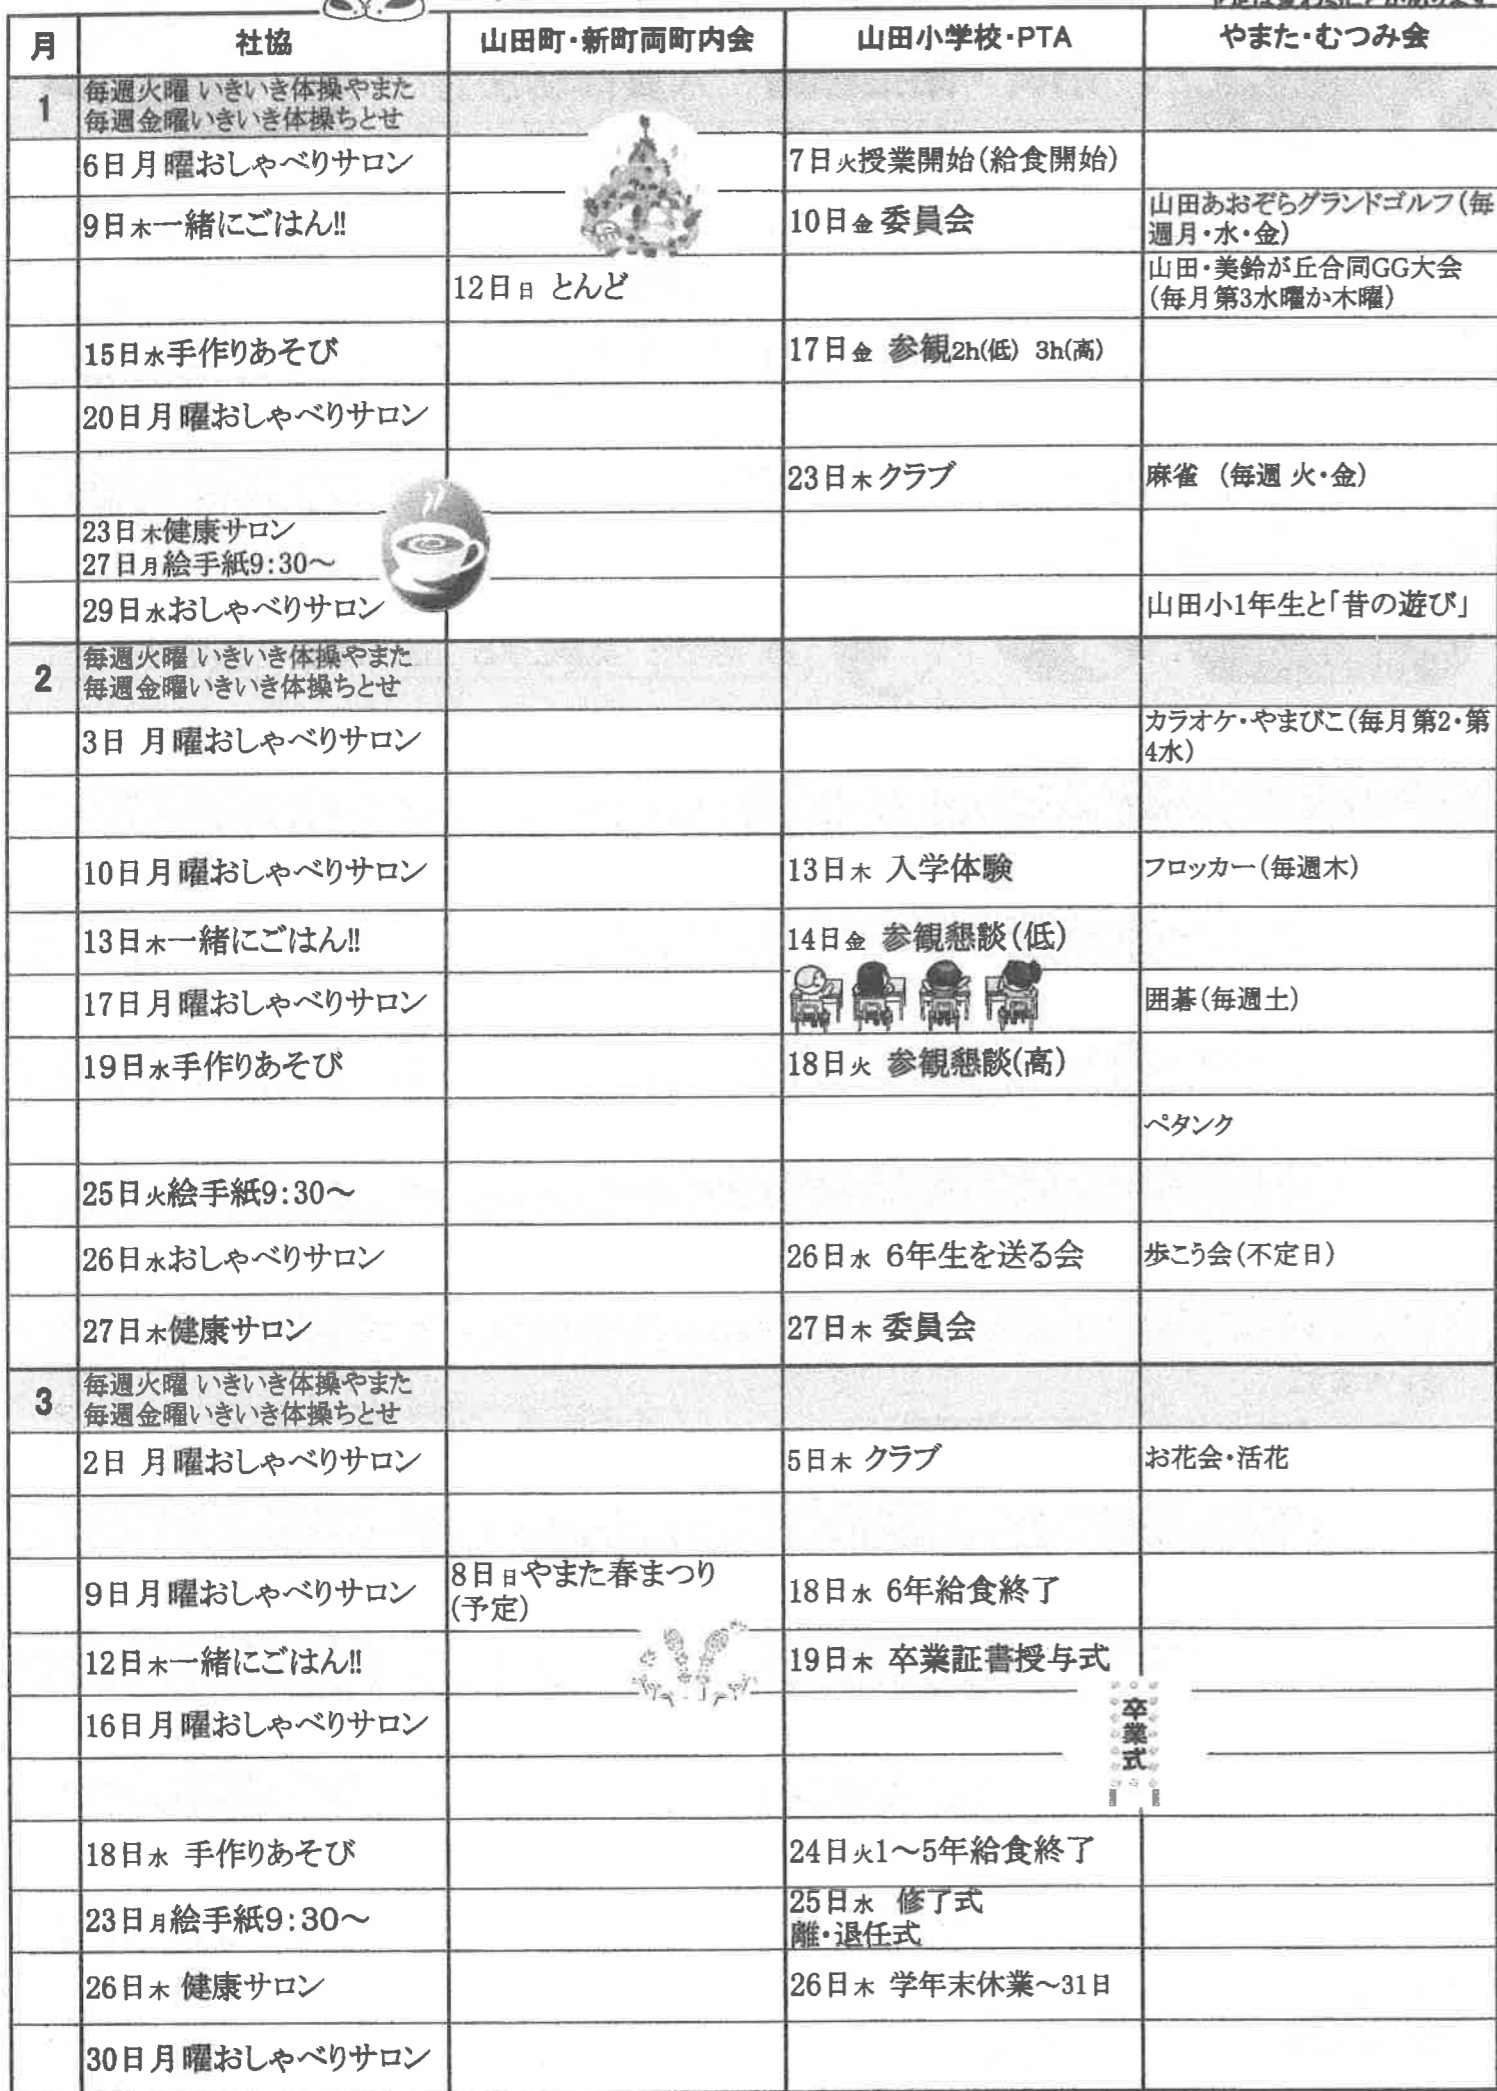 月 社協 山田町・新町両町内会 山田小学校・PTA やまた・むつみ会
1 毎週火曜 いきいき体操やまた
毎週金曜いきいき体操ちとせ
6日月曜おしゃべりサロン 7日火授業開始(給食開始)
9日木一緒にごはん!! 10日金 委員会 山田あおぞらグランドゴルフ(毎
週月・水・金)
12日日 とんど 山田・美鈴が丘合同GG大会
(毎月第3水曜か木曜)
15日水手作りあそび 17日金 参観2h(低) 3h(高)
20日月曜おしゃべりサロン
23日木クラブ 麻雀 (毎週 火・金)
23日木健康サロン
27日月絵手紙9:30～
29日水おしゃべりサロン 山田小1年生と「昔の遊び」
2 毎週火曜 いきいき体操やまた
毎週金曜いきいき体操ちとせ
3日 月曜おしゃべりサロン カラオケ・やまびこ(毎月第2・第
4水)
10日月曜おしゃべりサロン 13日木 入学体験 フロッカー(毎週木)
13日木一緒にごはん!! 14日金 参観懇談(低)
17日月曜おしゃべりサロン 囲碁(毎週土)
19日水手作りあそび 18日火 参観懇談(高)
ペタンク
25日火絵手紙9:30～
26日水おしゃべりサロン 26日水 6年生を送る会 歩こう会(不定日)
27日木健康サロン 27日木 委員会
3 毎週火曜 いきいき体操やまた
毎週金曜いきいき体操ちとせ
2日 月曜おしゃべりサロン 5日木 クラブ お花会・活花
9日月曜おしゃべりサロン 8日日やまた春まつり 18日水 6年給食終了
(予定)
12日木一緒にごはん!! 19日木 卒業証書授与式
16日月曜おしゃべりサロン 卒業式
18日水 手作りあそび 24日火1～5年給食終了
23日月絵手紙9:30～ 25日水 修了式
離・退任式
26日木 健康サロン 26日木 学年末休業～31日
30日月曜おしゃべりサロン